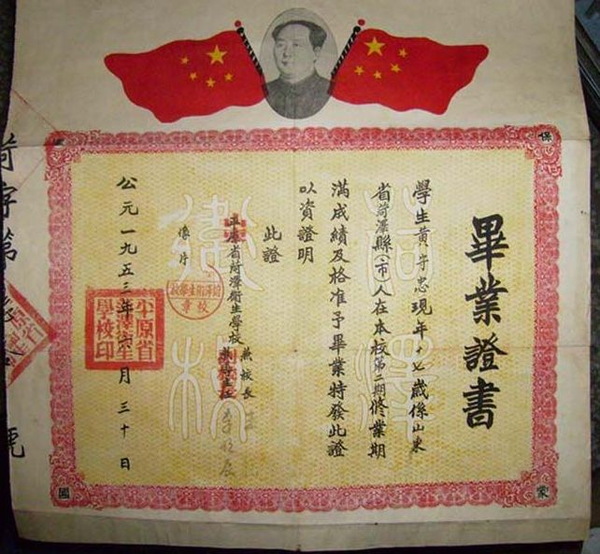 畢業證書
學生黃守忠現年十七歲係山東
省菏澤縣(市)人在本校第二期修業期
滿成績及格准予畢業特發此證
以資證明
此證
平原省菏澤衛生學校
兼校長
像片
公元一九五三年六月三十日
平原省
菏澤衛生
學校印
菏澤衛生學校
校章
菏澤
衛校
保
家
國
菏字第
號